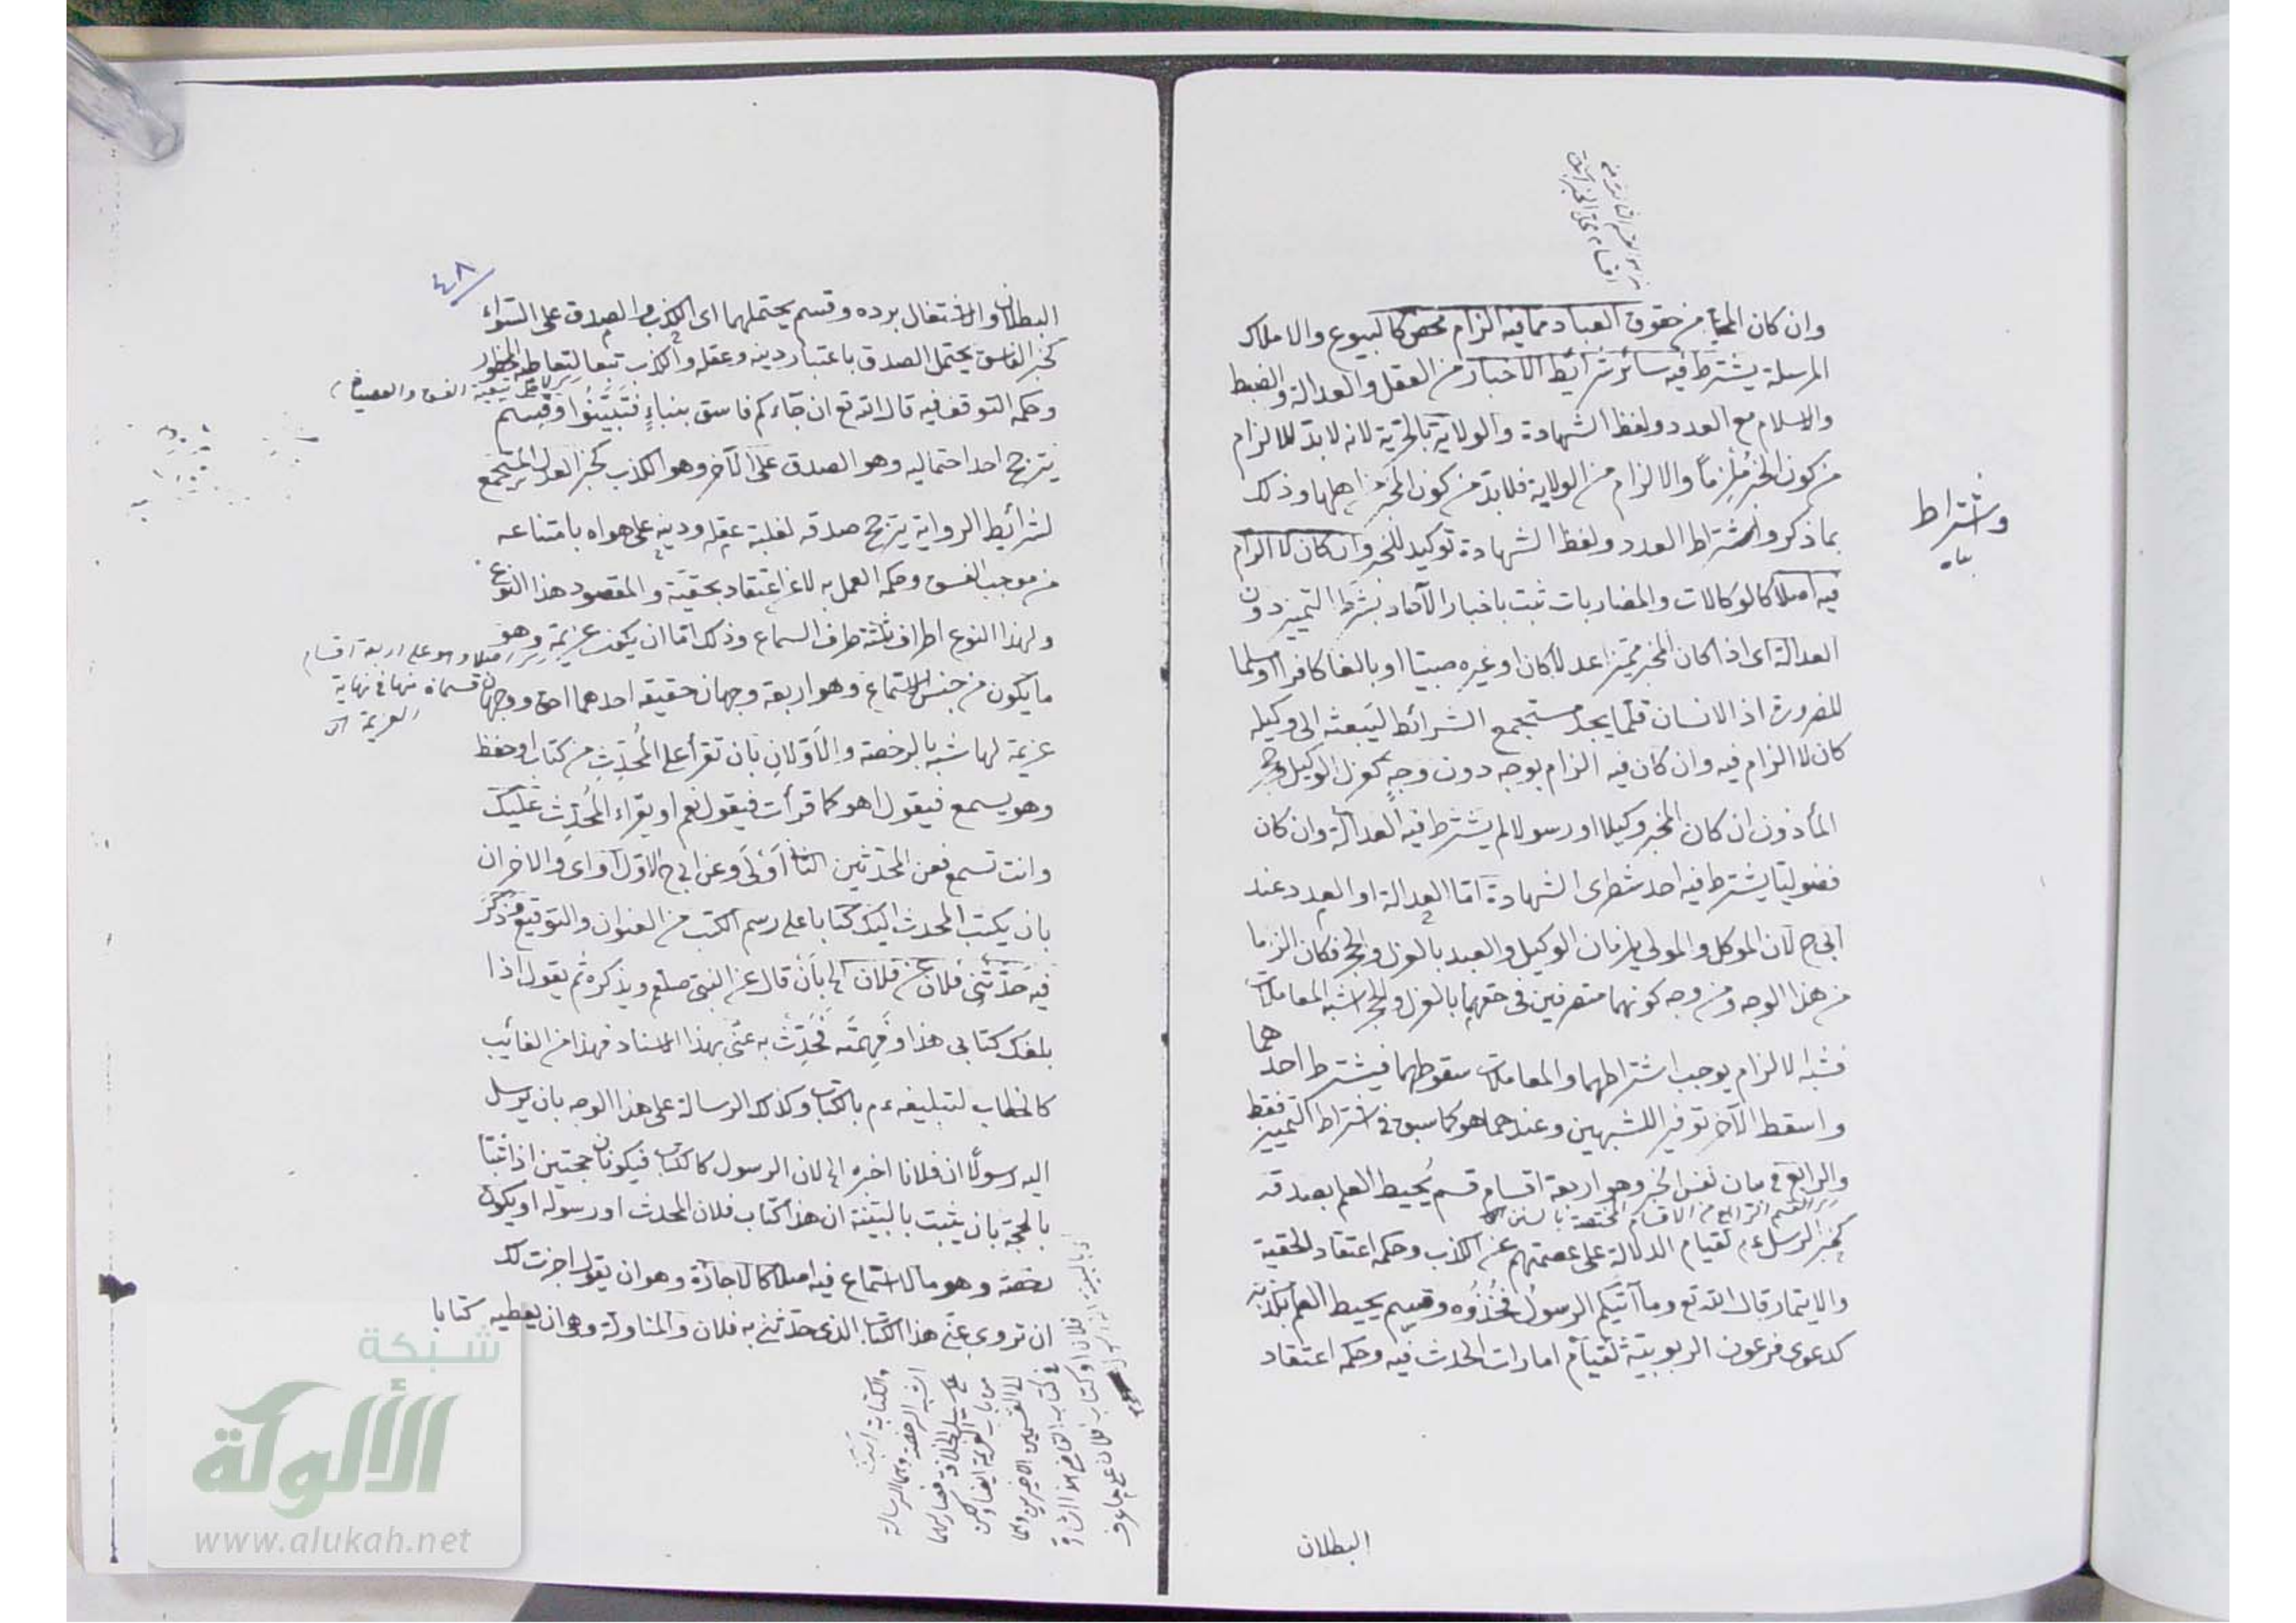 وان كان المحل من حقوق العباد مما فيه الزام محض كالبيوع والاملاك
المرسلة يشترط فيه سائر شرائط الاخبار من العقل والعدالة والضبط
والاسلام مع العدد ولفظ الشهادة والولاية بالحرية لانه لابد للالزام
من كون الخبر مُلزِماً والالزام من الولاية فلابد من كون المخبر من اهلها وذلك
بما ذكر واشتراط العدد ولفظ الشهادة توكيد للخبر وان كان لا الزام
واشتراط
فيه اصلا كالوكالات والمضاربات ثبت باخبار الآحاد بشرط التمييز دون
العدالة اى اذا كان المخبر مميزا عدلا كان او غيره صبيا او بالغا كافرا او مسلما
للضرورة اذ الانسان قلّما يجد مستجمع الشرائط ليبعثه الى وكيله
كان لا الزام فيه وان كان فيه الزام بوجه دون وجه كعزل الوكيل وحجر
المأذون ان كان المخبر وكيلا او رسولا لم يشترط فيه العدالة وان كان
فضوليّا يشترط فيه احد شطرى الشهادة امّا العدالة او العدد عند
ابى ح لان الموكل والمولى يلزمان الوكيل والعبد بالعزل والحجر فكان الزاما
من هذا الوجه ومن وجه كونهما متصرفين فى حقهما بالعزل والحجر اشبه المعاملات
فشبه الالزام يوجب اشتراطهما والمعاملات سقوطهما فيشترط احدهما
واسقط الآخر توفيرا للشبهين وعندهما هو كما سبق فى اشتراط التمييز فقط
والرابع فى بيان نفس الخبر وهو اربعة اقسام قسم يُحيط العلم بصدقه
القسم الرابع من الاقسام المختصة بالسنن
كخبر الرسل ءم لقيام الدلالة على عصمتهم عن الكذب وحكمه اعتقاد الحقية
والايتمار قال الله تع وما آتيكم الرسول فخُذُوه وقسم يحيط العلم بكذبه
كدعوى فرعون الربوبيّة لقيام امارات الحدث فيه وحكمه اعتقاد
البطلان
٤٨
البطلان والاشتغال برده وقسم يحتملهما اى الكذب والصدق على السّواء
كخبر الفاسق يحتمل الصدق باعتبار دينه وعقله والكذب تبعا لتعاطيه المحظور
وحكمه التوقف فيه قال الله تع ان جآءكم فاسق بنباءٍ فتَبَيَّنُوا وقسم
يترجح احد احتماليه وهو الصدق على الآخر وهو الكذب كخبر العدل المستجمع
لشرائط الرواية يترجح صدقه لغلبة عقله ودينه على هواه بامتناعه
من موجب الفسق وحكمه العمل به لا عن اعتقاد بحقيّته والمقصود هذا النوع
ولهذا النوع اطراف ثلثة طرف السماع وذلك امّا ان يكون عزيمة وهو
اصلا وهو على اربعة اقسام
قسمان منها فى نهاية
العزيمة
ما يكون من جنس الاستماع وهو اربعة وجهان حقيقة احدهما احق ووجهان
عزيمة لها شبه بالرخصة والاوّلان بان تقرأ على المُحدِّث من كتاب او حفظ
وهو يسمع فيقول اهو كما قرأت فيقول نعم او يقراء المُحدِّث عليك
وانت تسمع فعن المحدّثين الثانى اَوْلى وعن ابى ح الاوّل والاخران
بان يكتب المحدث اليك كتابا على رسم الكتب من العنوان والتوقيع وذكر
فيه حَدَّثَنِى فلان عن فلان الى بان قال عن النبى صلعم ويذكره ثم يقول اذا
بلغك كتابى هذا وفَهِمْتَه فحدِّث به عنّى بهذا الاسناد فهذا من الغائب
كالخطاب لتبليغه ءم بالكتاب وكذلك الرسالة على هذا الوجه بان يُرسل
اليه رسولًا ان فلانا اخبره الى لان الرسول كالكتاب فيكونان حجتين اذا ثبتا
بالحجة بان يثبت بالبيّنة ان هذا كتاب فلان المحدث او رسوله او يكون
رخصة وهو ما لا استماع فيه اصلا كالاجازة وهو ان يقول اجزت لك
ان تروى عنّى هذا الكتاب الذى حدّثنى به فلان والمناولة وهى ان يعطيه كتابا
شبكة
الألوكة
www.alukah.net